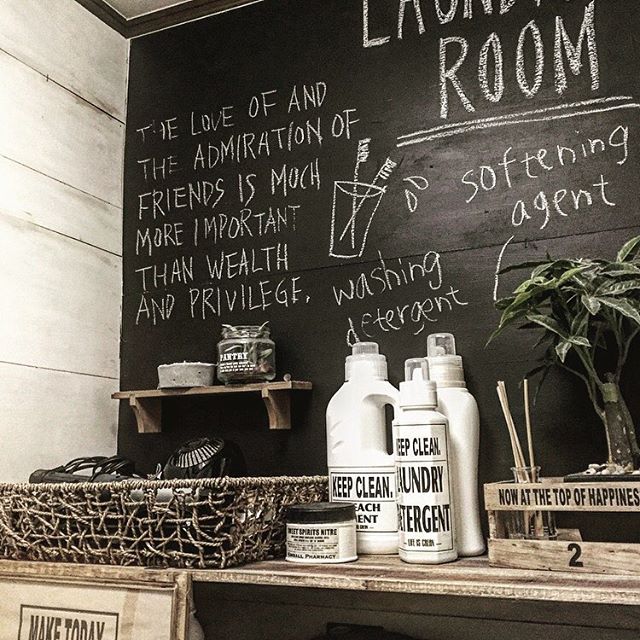 ROOM
THE LOVE OF AND
THE ADMIRATION OF
FRIENDS IS MUCH
MORE IMPORTANT
THAN WEALTH
AND PRIVILEGE.
softening
agent
washing
detergent
PANTRY
KEEP CLEAN.
KEEP CLEAN.
LAUNDRY
DETERGENT
LIFE IS COLOR
SWEET SPIRITS NITRE
PHARMACY
NOW AT THE TOP OF HAPPINESS
2
MAKE TODAY